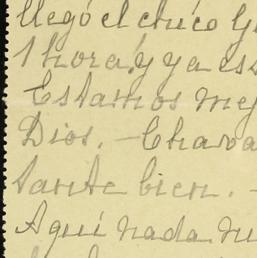 llegó el chico y
1 hora y ya es
Estamos mej
Dios. — Chava
tante bien. —
Aquí nada nu